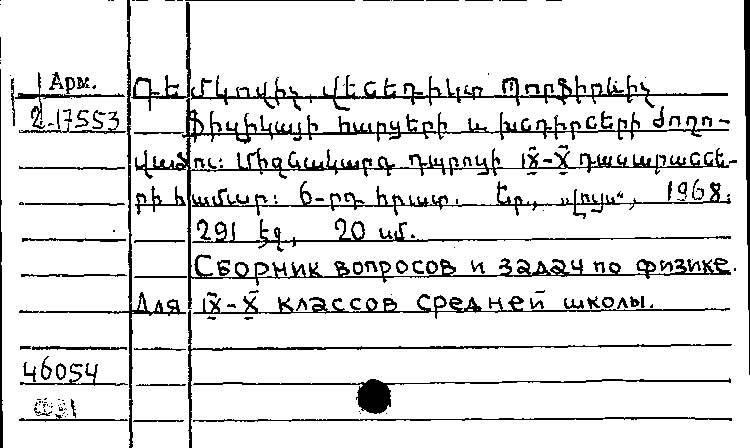 Арм.
2-17553
Դեմկովիչ, Վենեդիկտ Պորֆիրևիչ
Ֆիզիկայի հարցերի և խնդիրների ժողո-
վածու: Միջնակարգ դպրոցի IX-X դասարաննե-
րի համար: 6-րդ հրատ. Եր., „Լույս“, 1968.
291 էջ, 20 սմ.
Сборник вопросов и задач по физике.
Для IX-X классов средней школы.
46054